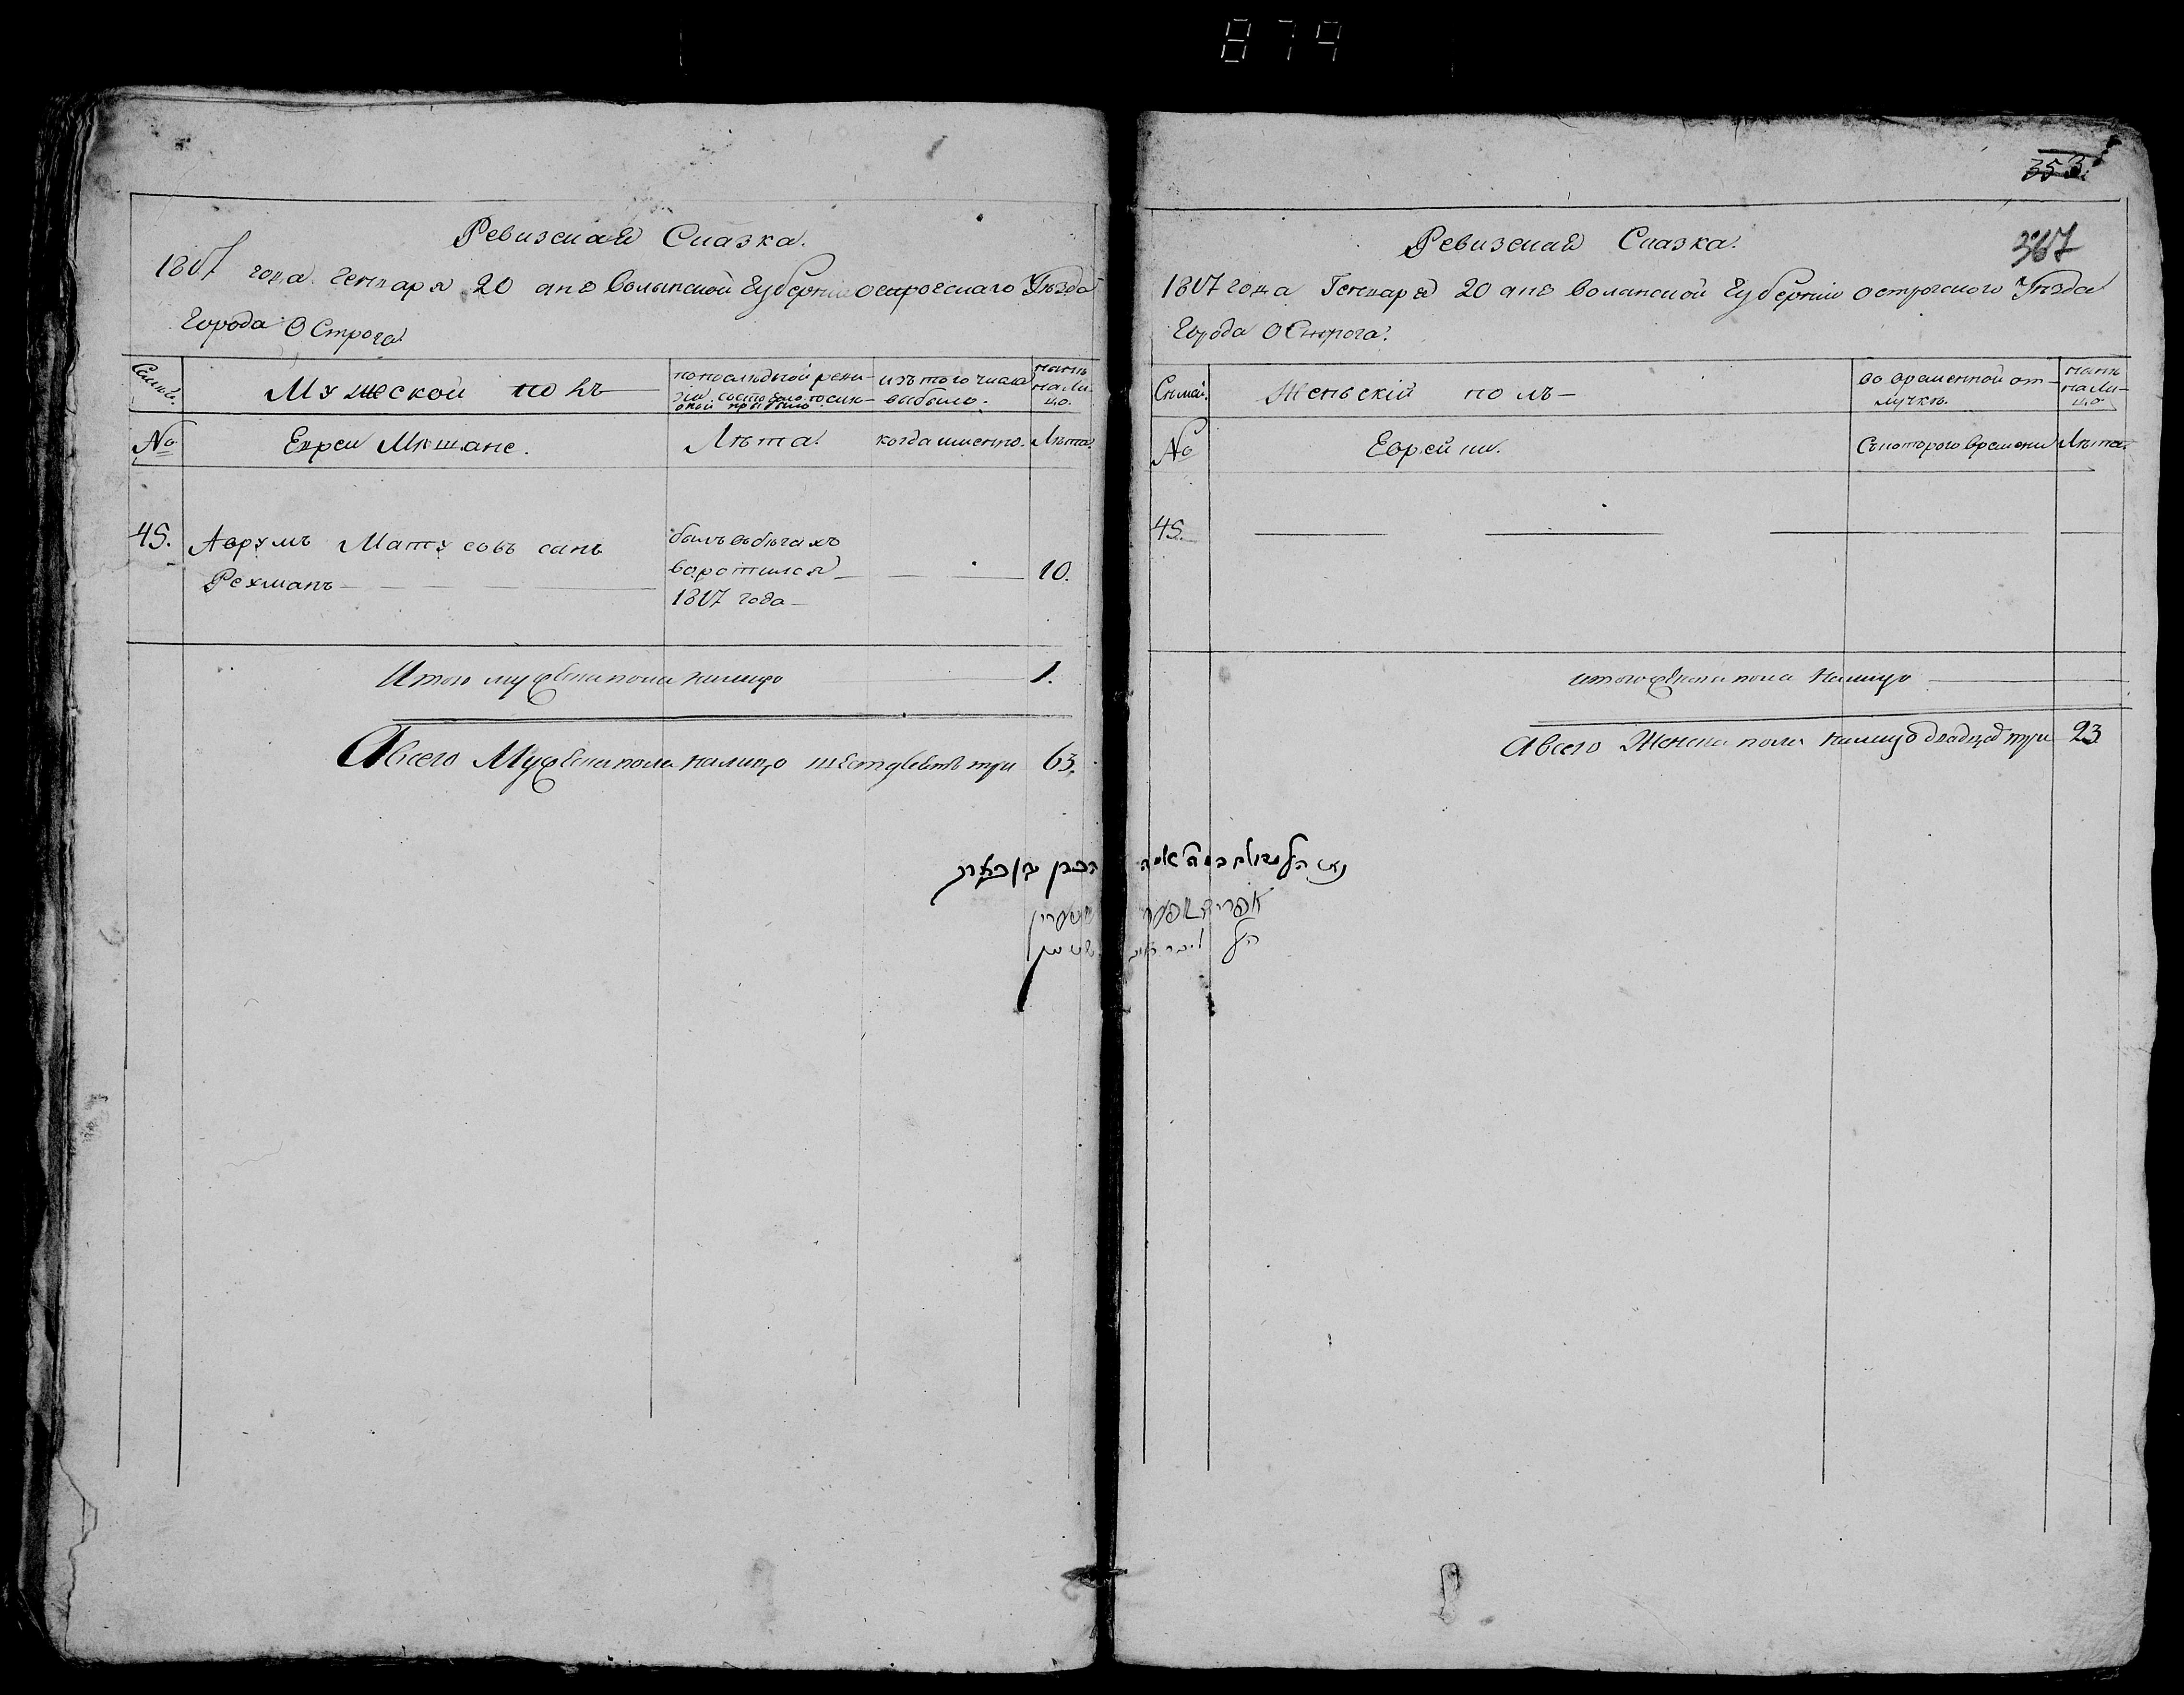 879
Ревизская Сказка.
1817 года Генваря 20 дня Волынской Губернии Острогского Уѣзда
Города Острога
Семьи. Мужеской полъ по последней ревизии состояло и после оной прибыло. изъ того числа выбыло. нынѣ на лицо.
№ Евреи Мѣщане. Лѣта. когда именно. Лѣта.
45. Аврумъ Матусовъ сынъ былъ въ бѣгахъ
Рехманъ воротился 10.
1817 года
Итого мужеска пола налицо 1.
А всего Мужеска пола налицо шестдесятъ три 63.
353
367
Ревизская Сказка.
1817 года Генваря 20 дня Волынской Губернии Острогского Уѣзда
Города Острога.
Семьи. Женьский полъ во временной отлучкѣ. нынѣ на лицо
№ Еврейки. Съ которого времени Лѣта.
45.
итого женска пола налицо
А всего Женска пола налицо двадцать три 23